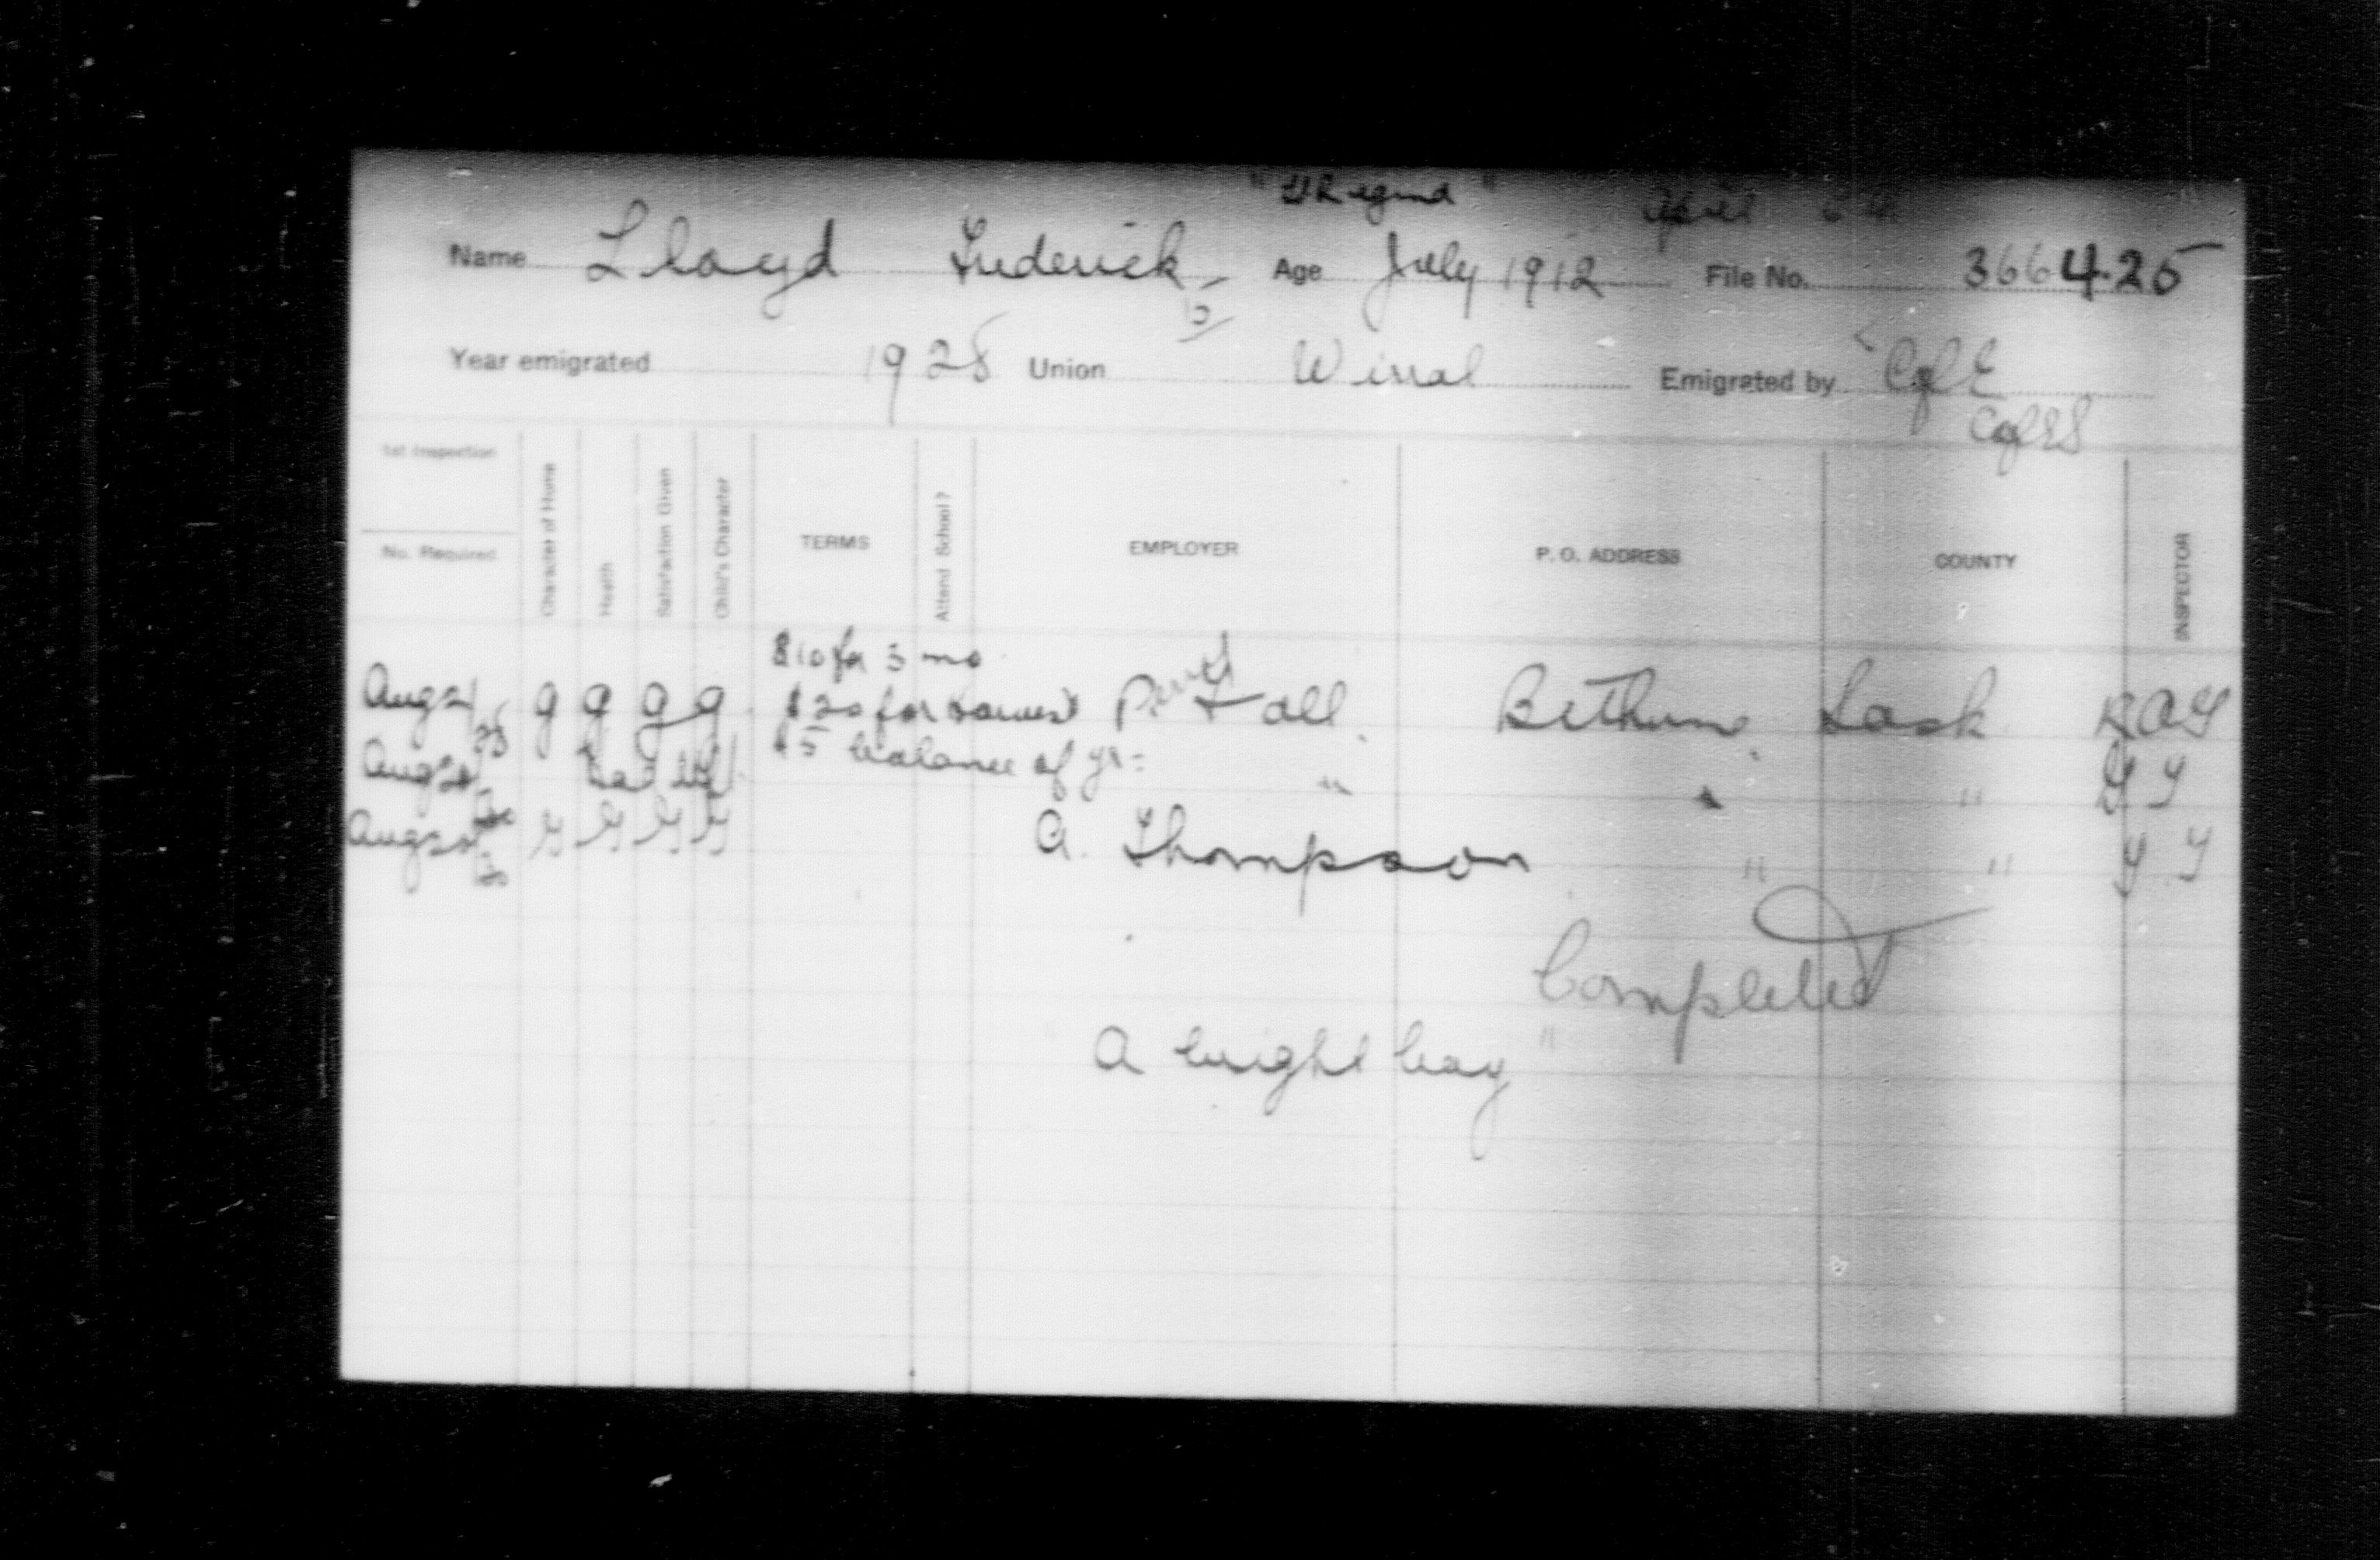 "Regina" April
Name Lloyd Frederick Age July 1912 File No. 366425
15
Year emigrated 1928 Union Wirral Emigrated by C of E
C of E S
1st Inspection
No. Required
Character of Home
Health
Satisfaction Given
Child's Character
TERMS
Attend School?
EMPLOYER
P. O. ADDRESS
COUNTY
INSPECTOR
$10 for 3 mo
Aug 21 g g g g $20 for harvest Percy Fall Bethune Sask
$5 balance of yr.
Aug " " "
Aug G G G G A. Thompson " "
Completed
A bright boy "